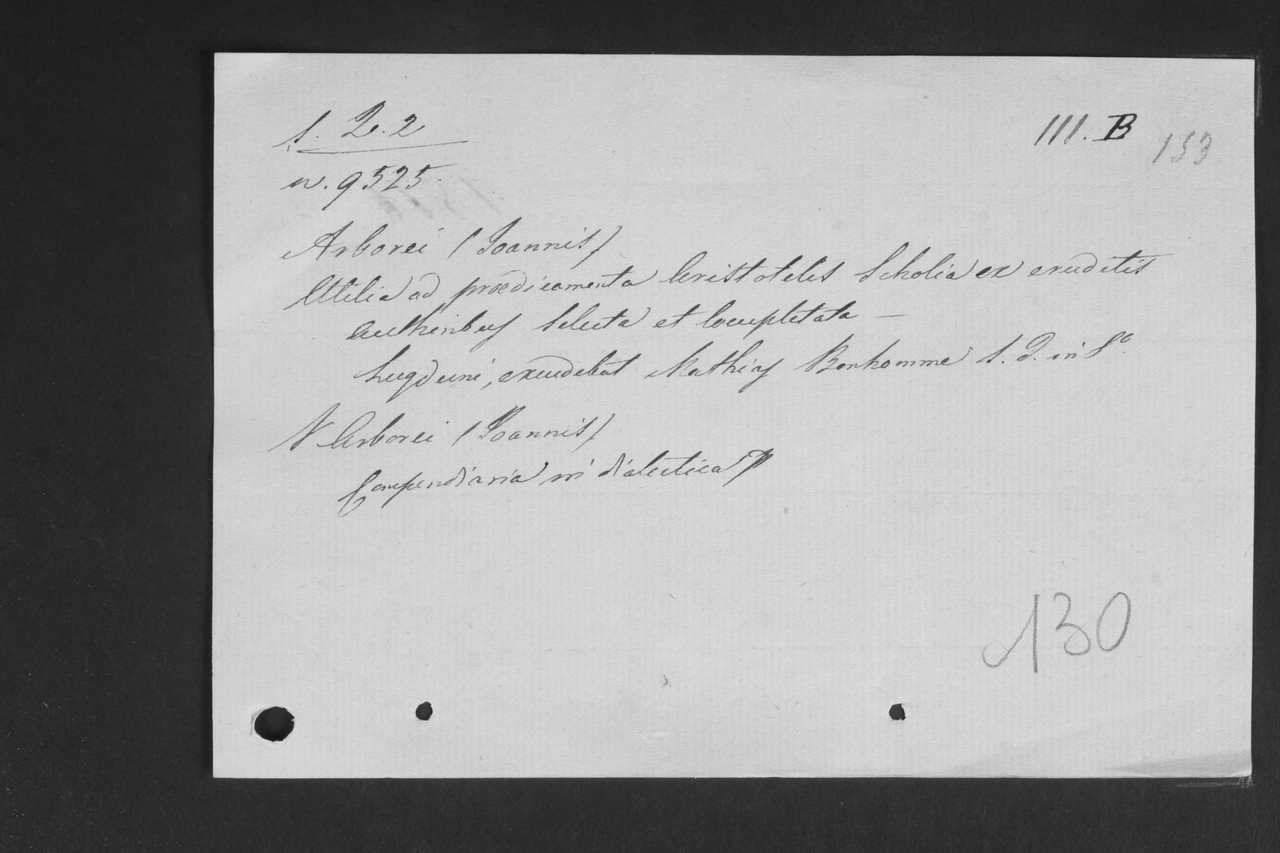 S. Q. 2
III. B 153
n. 9525.
Arborei (Joannis)
Utilia ad prædicamenta Aristoteles Scholia ex eruditis
Authoribus Selecta et locupletata —
Lugduni, excudebat Mathias Bonhomme S. D. in 8º.
V Arborei (Joannis)
Compendiaria in dialectica
130